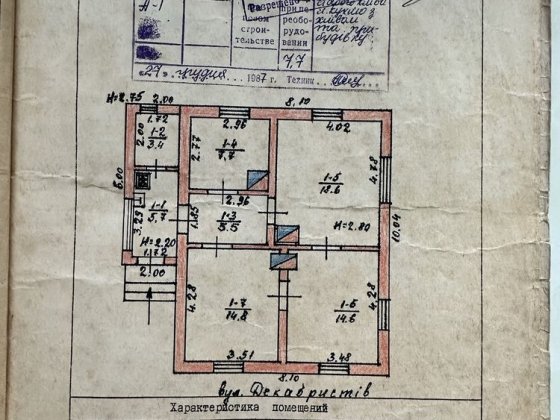 А-1
Разрешено
новом
строи-
тельстве
при пе-
реобо-
рудо-
вании
7,7
хлівом
та при-
будівку
"27" грудня 1987 г. Техник
H=2.75 2.00 8.10
1.72 2.96 4.02
2.00 1-2 3.4
2.77 1-4 7.7
1-5 18.6 4.78
5.00
1-1 5.7 3.29
2.96
1.85 1-3 5.5
H=2.80
10.04
H=2.20
1.72
2.00
4.28 1-7 14.8
1-6 14.6 4.28
3.51 3.48
8.10
вул. Декабристів
Характеристика помещений